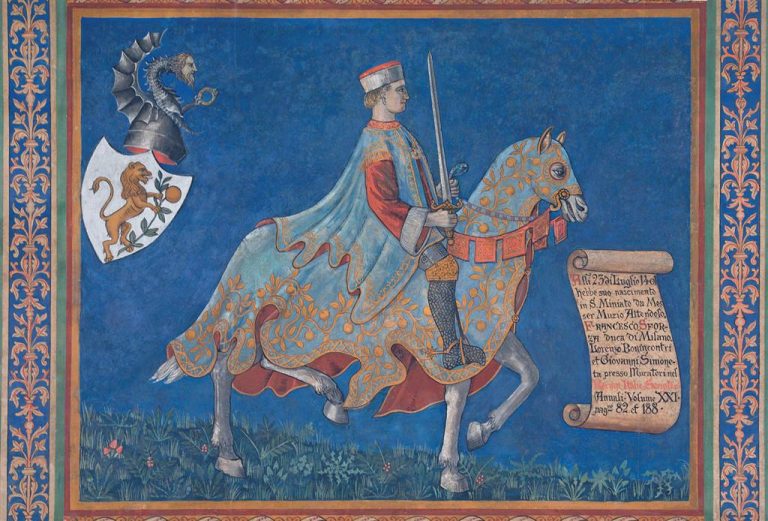 Alli 23 di Luglio 140
hebbe suo nascimento
in S. Miniato da Mes
ser Muzio Attendolo,
FRANCESCO SFOR
ZA duca di Milano,
Lorenzo Bonincontri
et Giovanni Simone
ta presso Muratori nel
Rerum Italic.
Annali. Volume XXI.
pag.e 82. et 188.